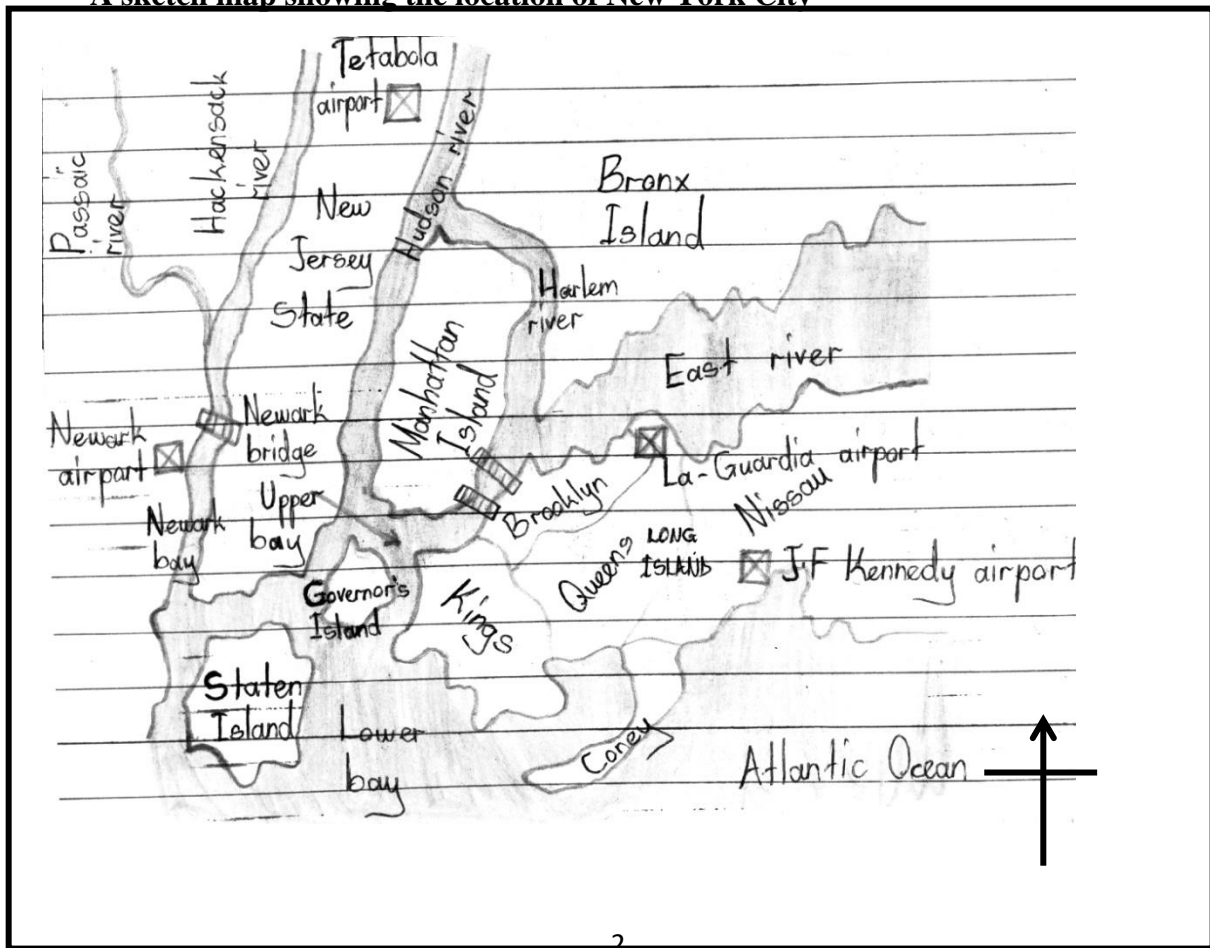 A sketch map showing the location of New York City
Tetabola
airport
Passaic
river
Hackensack
river
Hudson river
New
Jersey
State
Bronx
Island
Harlem
river
Manhattan
Island
East river
Newark
airport
Newark
bridge
Newark
bay
Upper
bay
Brooklyn
La-Guardia airport
Nissau
Queens
LONG
ISLAND
J.F Kennedy airport
Governor's
Island
Kings
Staten
Island
Lower
bay
Coney
Atlantic Ocean
2